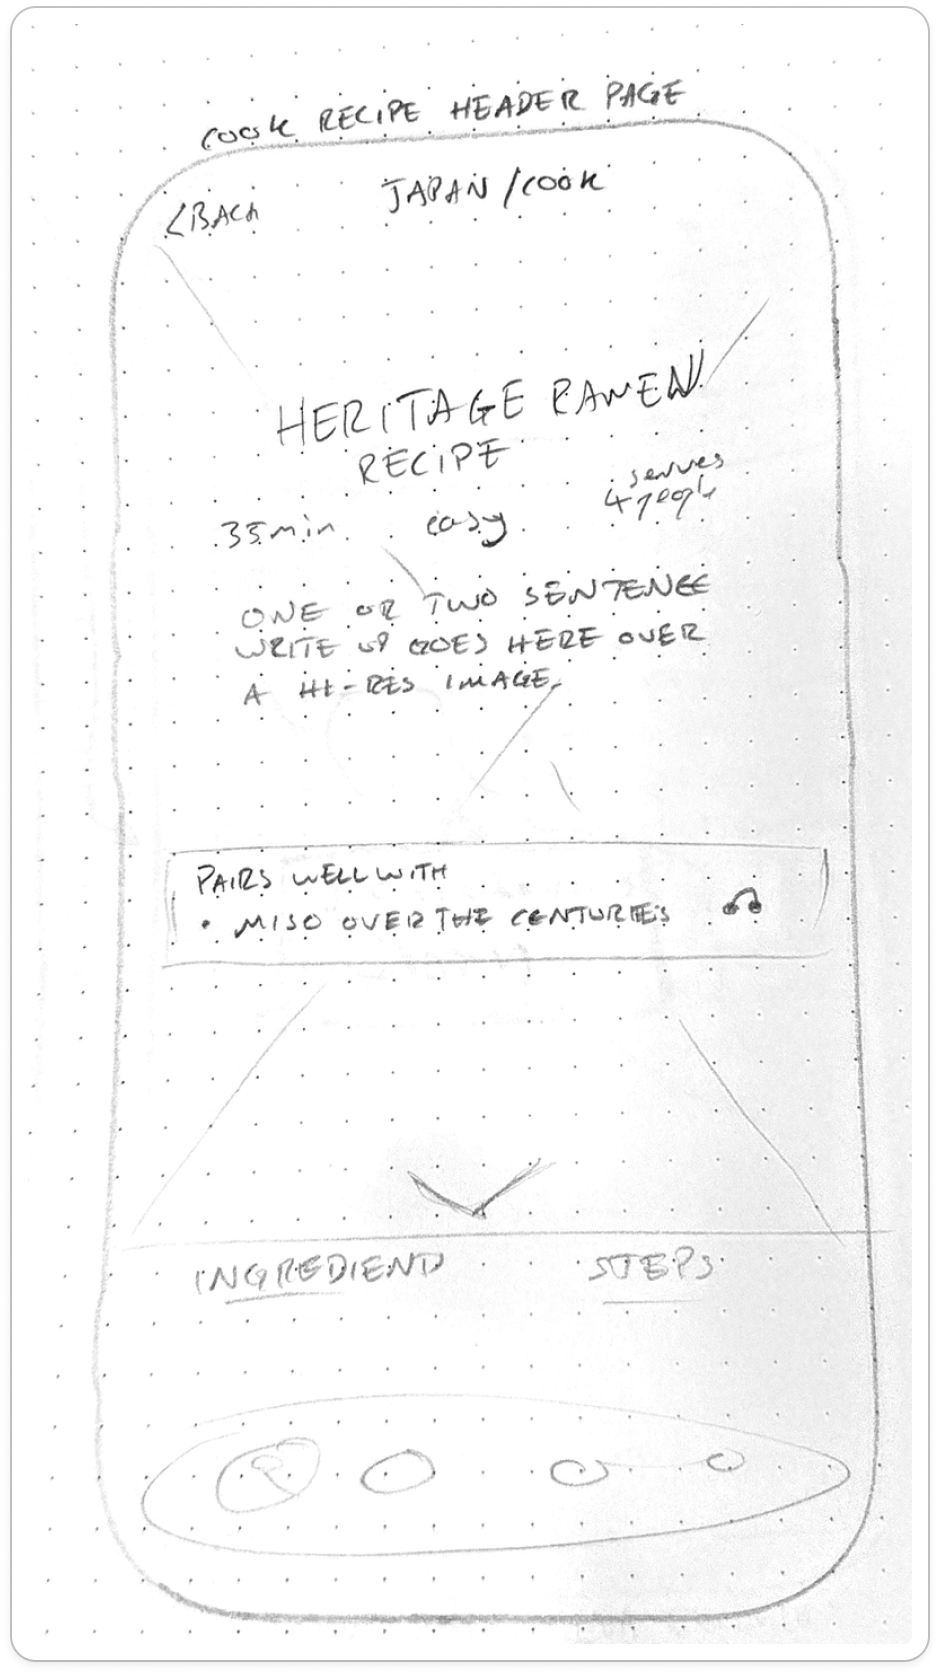 COOK RECIPE HEADER PAGE
<BACK
JAPAN/COOK
HERITAGE RAMEN
RECIPE
35min easy serves
4 people
ONE OR TWO SENTENCE
WRITE UP GOES HERE OVER
A HI-RES IMAGE
PAIRS WELL WITH
• MISO OVER THE CENTURIES
INGREDIENT STEPS